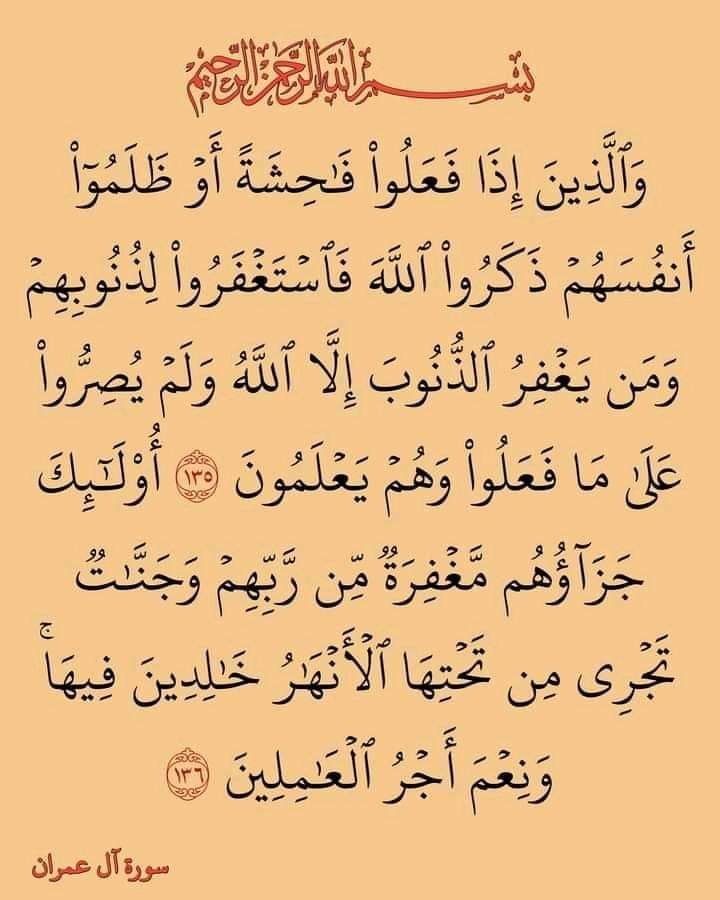 بسم الله الرحمن الرحيم
وَٱلَّذِينَ إِذَا فَعَلُوا۟ فَـٰحِشَةً أَوْ ظَلَمُوٓا۟
أَنفُسَهُمْ ذَكَرُوا۟ ٱللَّهَ فَٱسْتَغْفَرُوا۟ لِذُنُوبِهِمْ
وَمَن يَغْفِرُ ٱلذُّنُوبَ إِلَّا ٱللَّهُ وَلَمْ يُصِرُّوا۟
عَلَىٰ مَا فَعَلُوا۟ وَهُمْ يَعْلَمُونَ ١٣٥ أُو۟لَـٰٓئِكَ
جَزَآؤُهُم مَّغْفِرَةٌ مِّن رَّبِّهِمْ وَجَنَّـٰتٌ
تَجْرِى مِن تَحْتِهَا ٱلْأَنْهَـٰرُ خَـٰلِدِينَ فِيهَا ۚ
وَنِعْمَ أَجْرُ ٱلْعَـٰمِلِينَ ١٣٦
سورة آل عمران